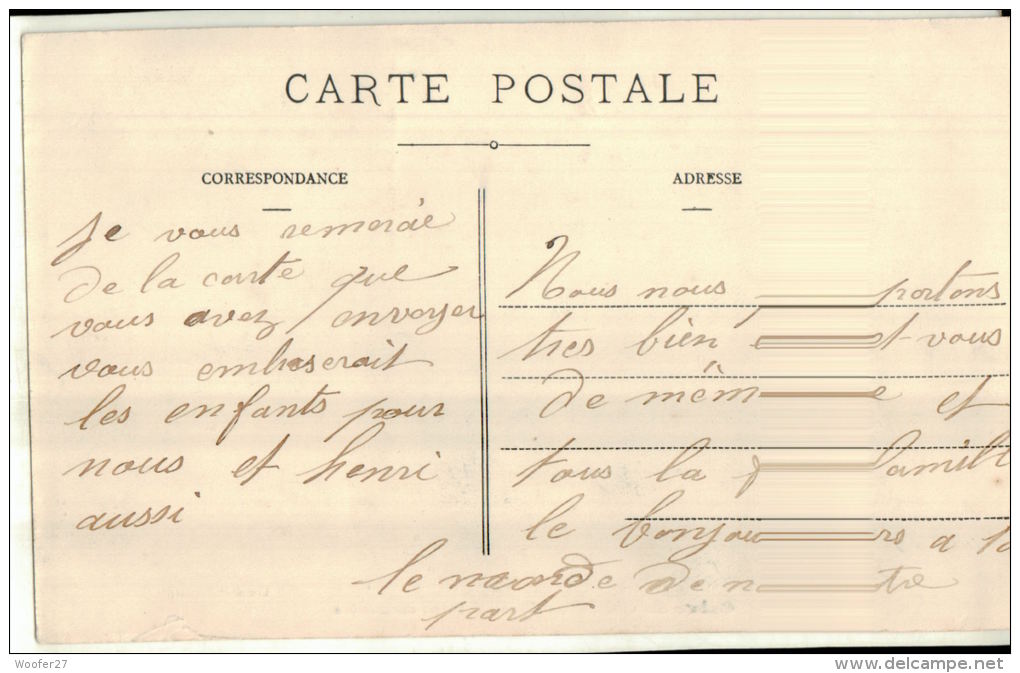 CARTE POSTALE
CORRESPONDANCE
Je vous remercie
de la carte que
vous avez envoyer
vous embraserait
les enfants pour
nous et henri
aussi
ADRESSE
Nous nous portons
tres bien et vous
de même et
tous la famill
le bonjours a
le monde de notre
part
Woofer27
www.delcampe.net